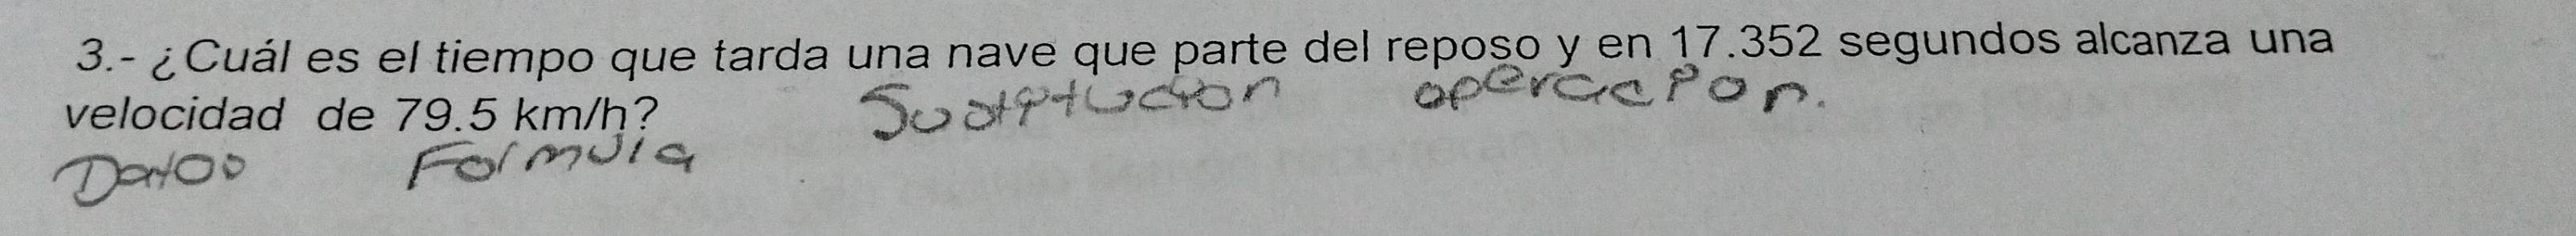 3.- ¿Cuál es el tiempo que tarda una nave que parte del reposo y en 17.352 segundos alcanza una
velocidad de 79.5 km/h?
Sustitucion operacion.
Datos Formula